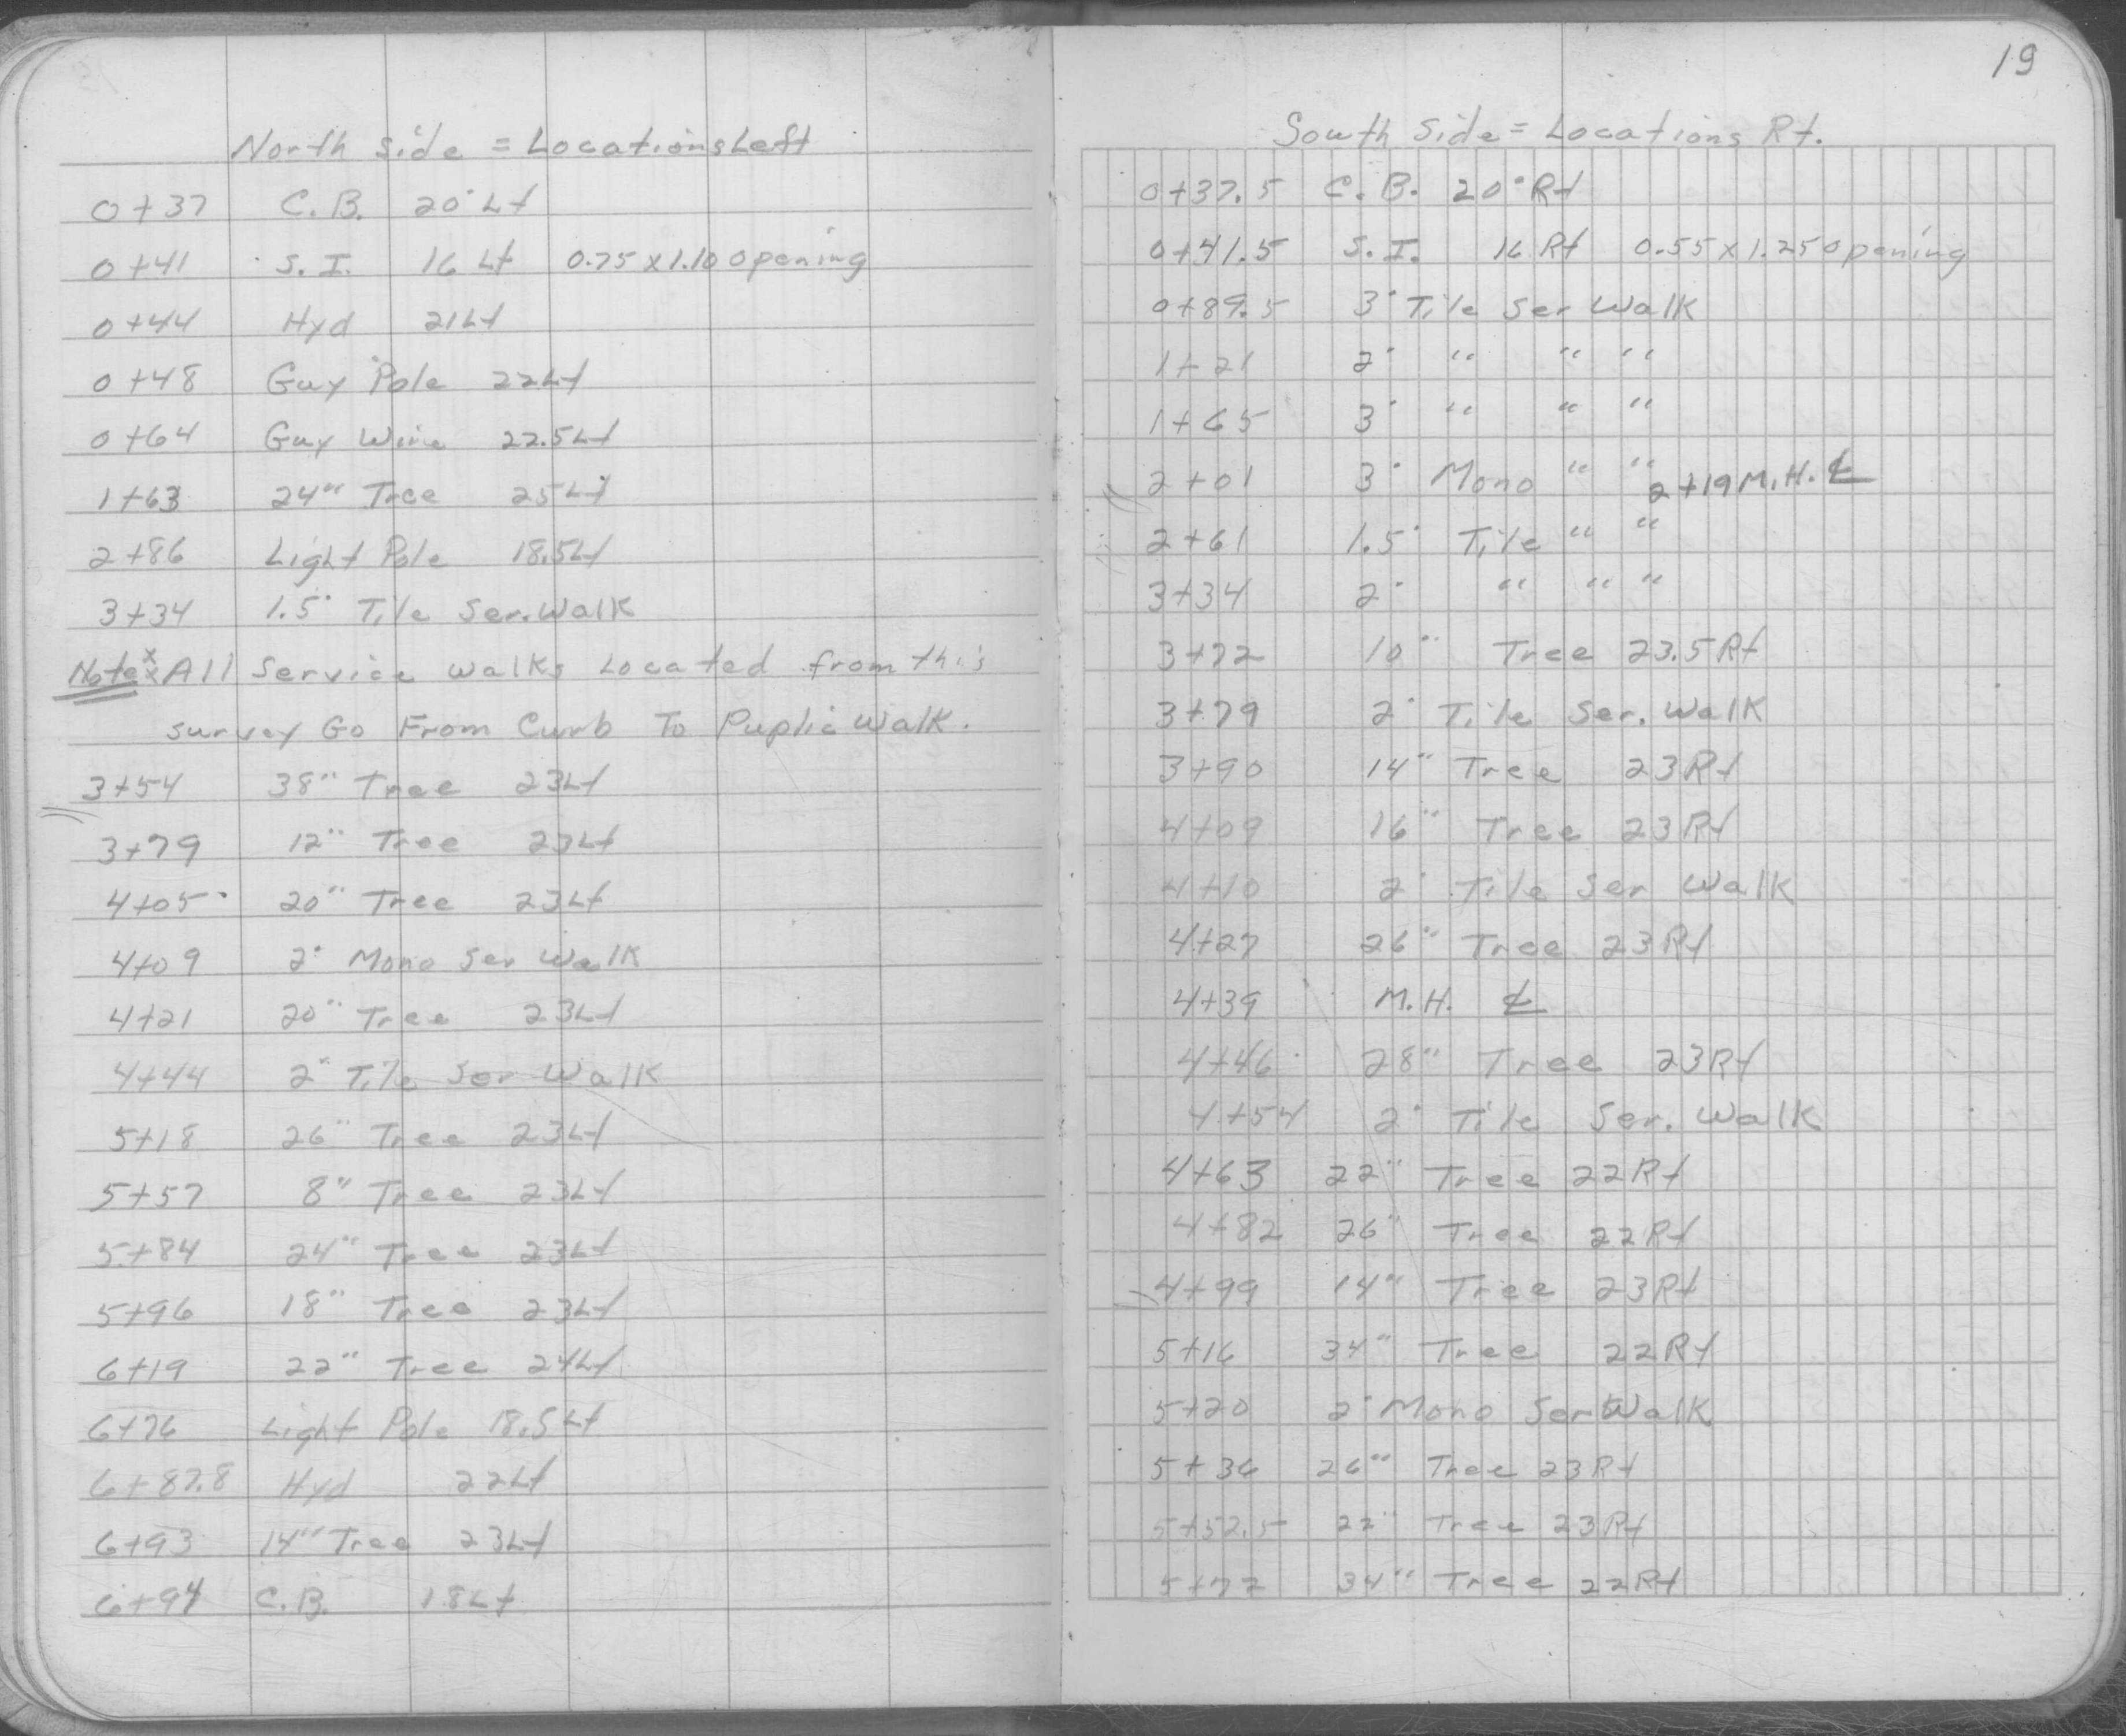 North Side = Locations Left
0+37 C.B. 20' Lt
0+41 S.I. 16 Lt 0.75 x 1.10 opening
0+44 Hyd 21 Lt
0+48 Guy Pole 22 Lt
0+64 Guy Wire 22.5 Lt
1+63 24" Tree 25 Lt
2+86 Light Pole 18.5 Lt
3+34 1.5' Tile Ser. Walk
Note: All Service walks Located from this
survey Go From Curb To Puplic Walk.
3+54 38" Tree 23 Lt
3+79 12" Tree 23 Lt
4+05 20" Tree 23 Lt
4+09 2' Mono Ser Walk
4+21 20" Tree 23 Lt
4+44 2' Tile Ser Walk
5+18 26" Tree 23 Lt
5+57 8" Tree 23 Lt
5+84 24" Tree 23 Lt
5+96 18" Tree 23 Lt
6+19 22" Tree 24 Lt
6+76 Light Pole 18.5 Lt
6+87.8 Hyd 22 Lt
6+93 14" Tree 23 Lt
6+94 C.B. 18 Lt
19
South Side = Locations Rt.
0+37.5 C.B. 20' Rt
0+41.5 S.I. 16 Rt 0.55 x 1.25 opening
0+89.5 3' Tile Ser Walk
1+21 2' " " "
1+65 3' " " "
2+01 3' Mono " " 2+19 M.H. ℄
2+61 1.5' Tile " "
3+34 2' " " "
3+72 10" Tree 23.5 Rt
3+79 2' Tile Ser. Walk
3+90 14" Tree 23 Rt
4+09 16" Tree 23 Rt
4+10 2' Tile Ser Walk
4+27 26" Tree 23 Rt
4+39 M.H. ℄
4+46 28" Tree 23 Rt
4+54 2' Tile Ser. Walk
4+63 22" Tree 22 Rt
4+82 26" Tree 22 Rt
4+99 14" Tree 23 Rt
5+16 34" Tree 22 Rt
5+20 2' Mono Ser Walk
5+36 26" Tree 23 Rt
5+52.5 22" Tree 23 Rt
5+72 34" Tree 22 Rt